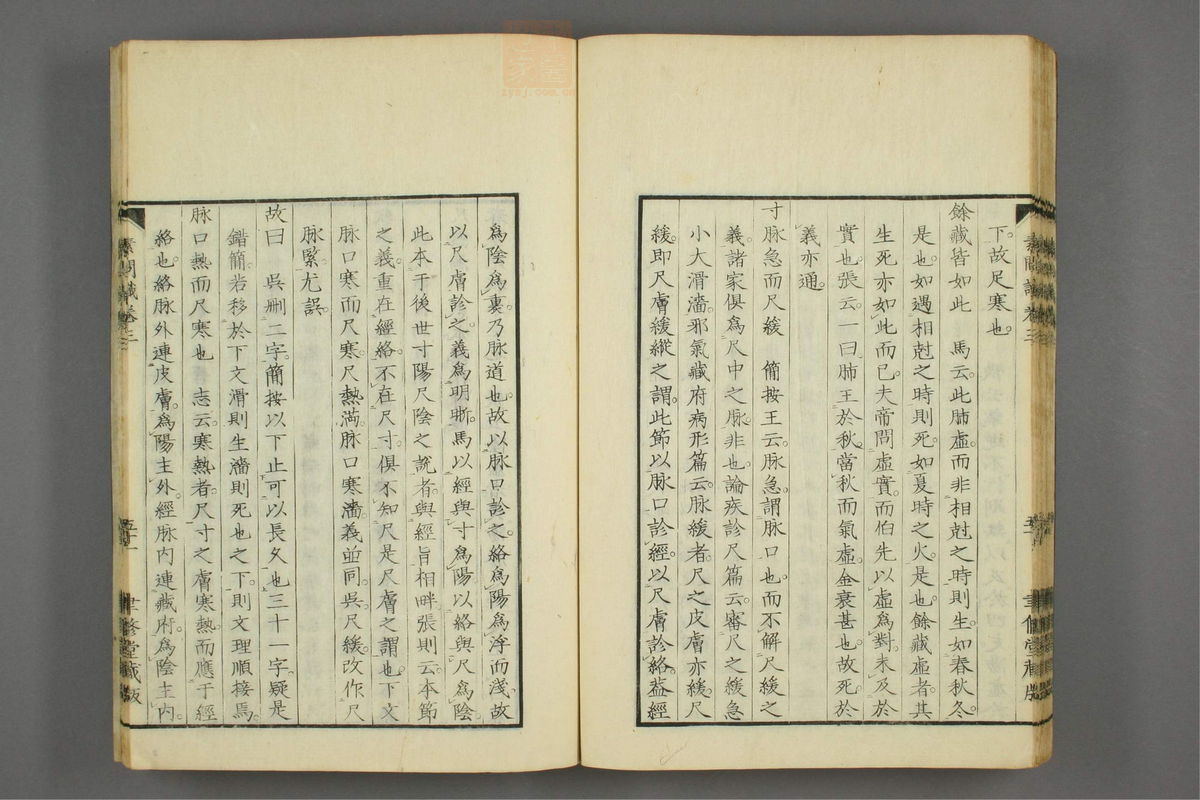 下。故足寒也。
餘藏皆如此　馬云。此肺虛。而非相尅之時則生。如春秋冬。
是也。如遇相尅之時則死。如夏時之火。是也。餘藏虛者。其
生死亦如此而已。夫帝問虛實。而伯先以虛爲對。未及於
實也。張云。一曰肺王於秋。當秋而氣虛。金衰甚也。故死。於
義亦通。
寸脉急而尺緩　簡按王云。脉急。謂脉口也。而不解尺緩之
義。諸家俱爲尺中之脉。非也。論疾診尺篇云。審尺之緩急
小大滑濇。邪氣藏府病形篇云。脉緩者。尺之皮膚亦緩。尺
緩即尺膚緩縱之謂。此節以脉口診經。以尺膚診絡。葢經
爲陰爲裏。乃脉道也。故以脉口診之。絡爲陽爲浮而淺。故
以尺膚診之。義爲明晰。馬以經與寸爲陽。以絡與尺爲陰。
此本于後世寸陽尺陰之說者。與經旨相畔。張則云。本節
之義。重在經絡。不在尺寸。俱不知尺是尺膚之謂也。下文
脉口寒而尺寒。尺熱滿。脉口寒濇。義並同。吳尺緩。改作尺
脉緊。尤誤。
故曰　吳刪二字。簡按以下止可以長久也三十一字。疑是
錯簡。若移於下文滑則生濇則死也之下。則文理順接焉。
脉口熱而尺寒也　志云。寒熱者。尺寸之膚寒熱。而應于經
絡也。絡脉外連皮膚。爲陽主外。經脉內連藏府。爲陰主內。
素問識卷三
聿修堂藏版